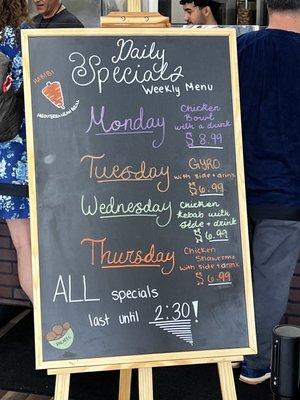 Daily
Specials
Weekly Menu
HABIBI
MEDITERRANEAN GRILL
Monday
Chicken
Bowl
with a drink
$ 8.99
Tuesday
GYRO
with side + drink
$ 6.99
Wednesday
Chicken
Kebab with
side + drink
$ 6.99
Thursday
Chicken
Shawerma
with side + drink
$ 6.99
ALL specials
last until 2:30!
FALAFEL